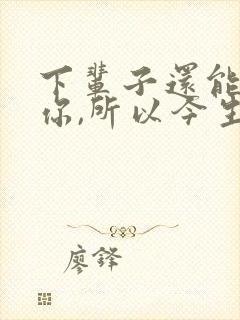 下輩子還能
你,所以今生
廖鋒